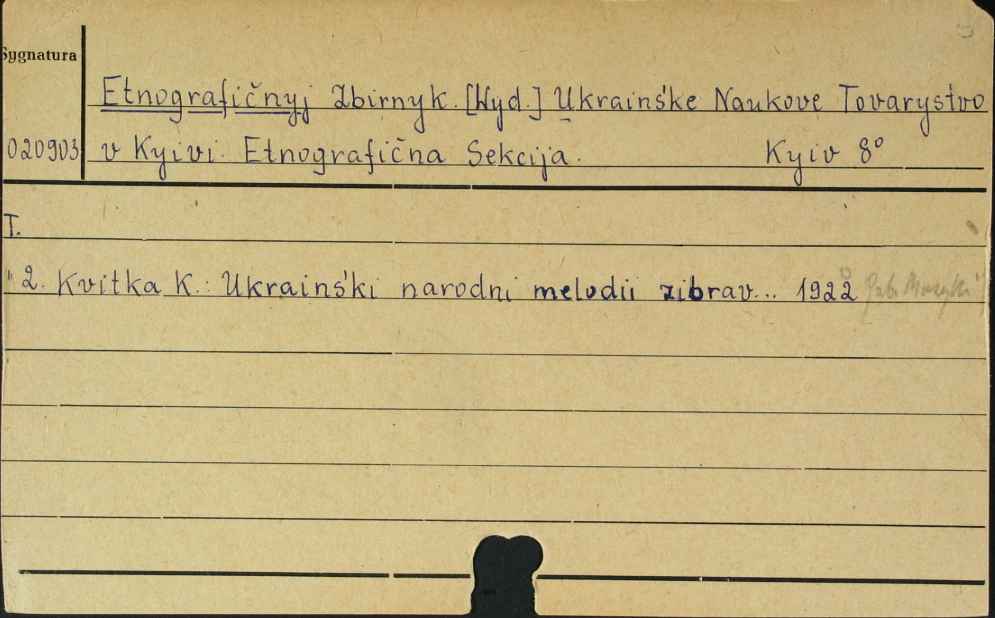 Sygnatura
Etnografičnyj Zbirnyk. [Wyd.] Ukrainśke Naukove Tovarystvo
020903 v Kyivi. Etnografična Sekcija. Kyiv 8°
T.
" 2. Kvitka K.: Ukrainśki narodni melodii zibrav... 1922